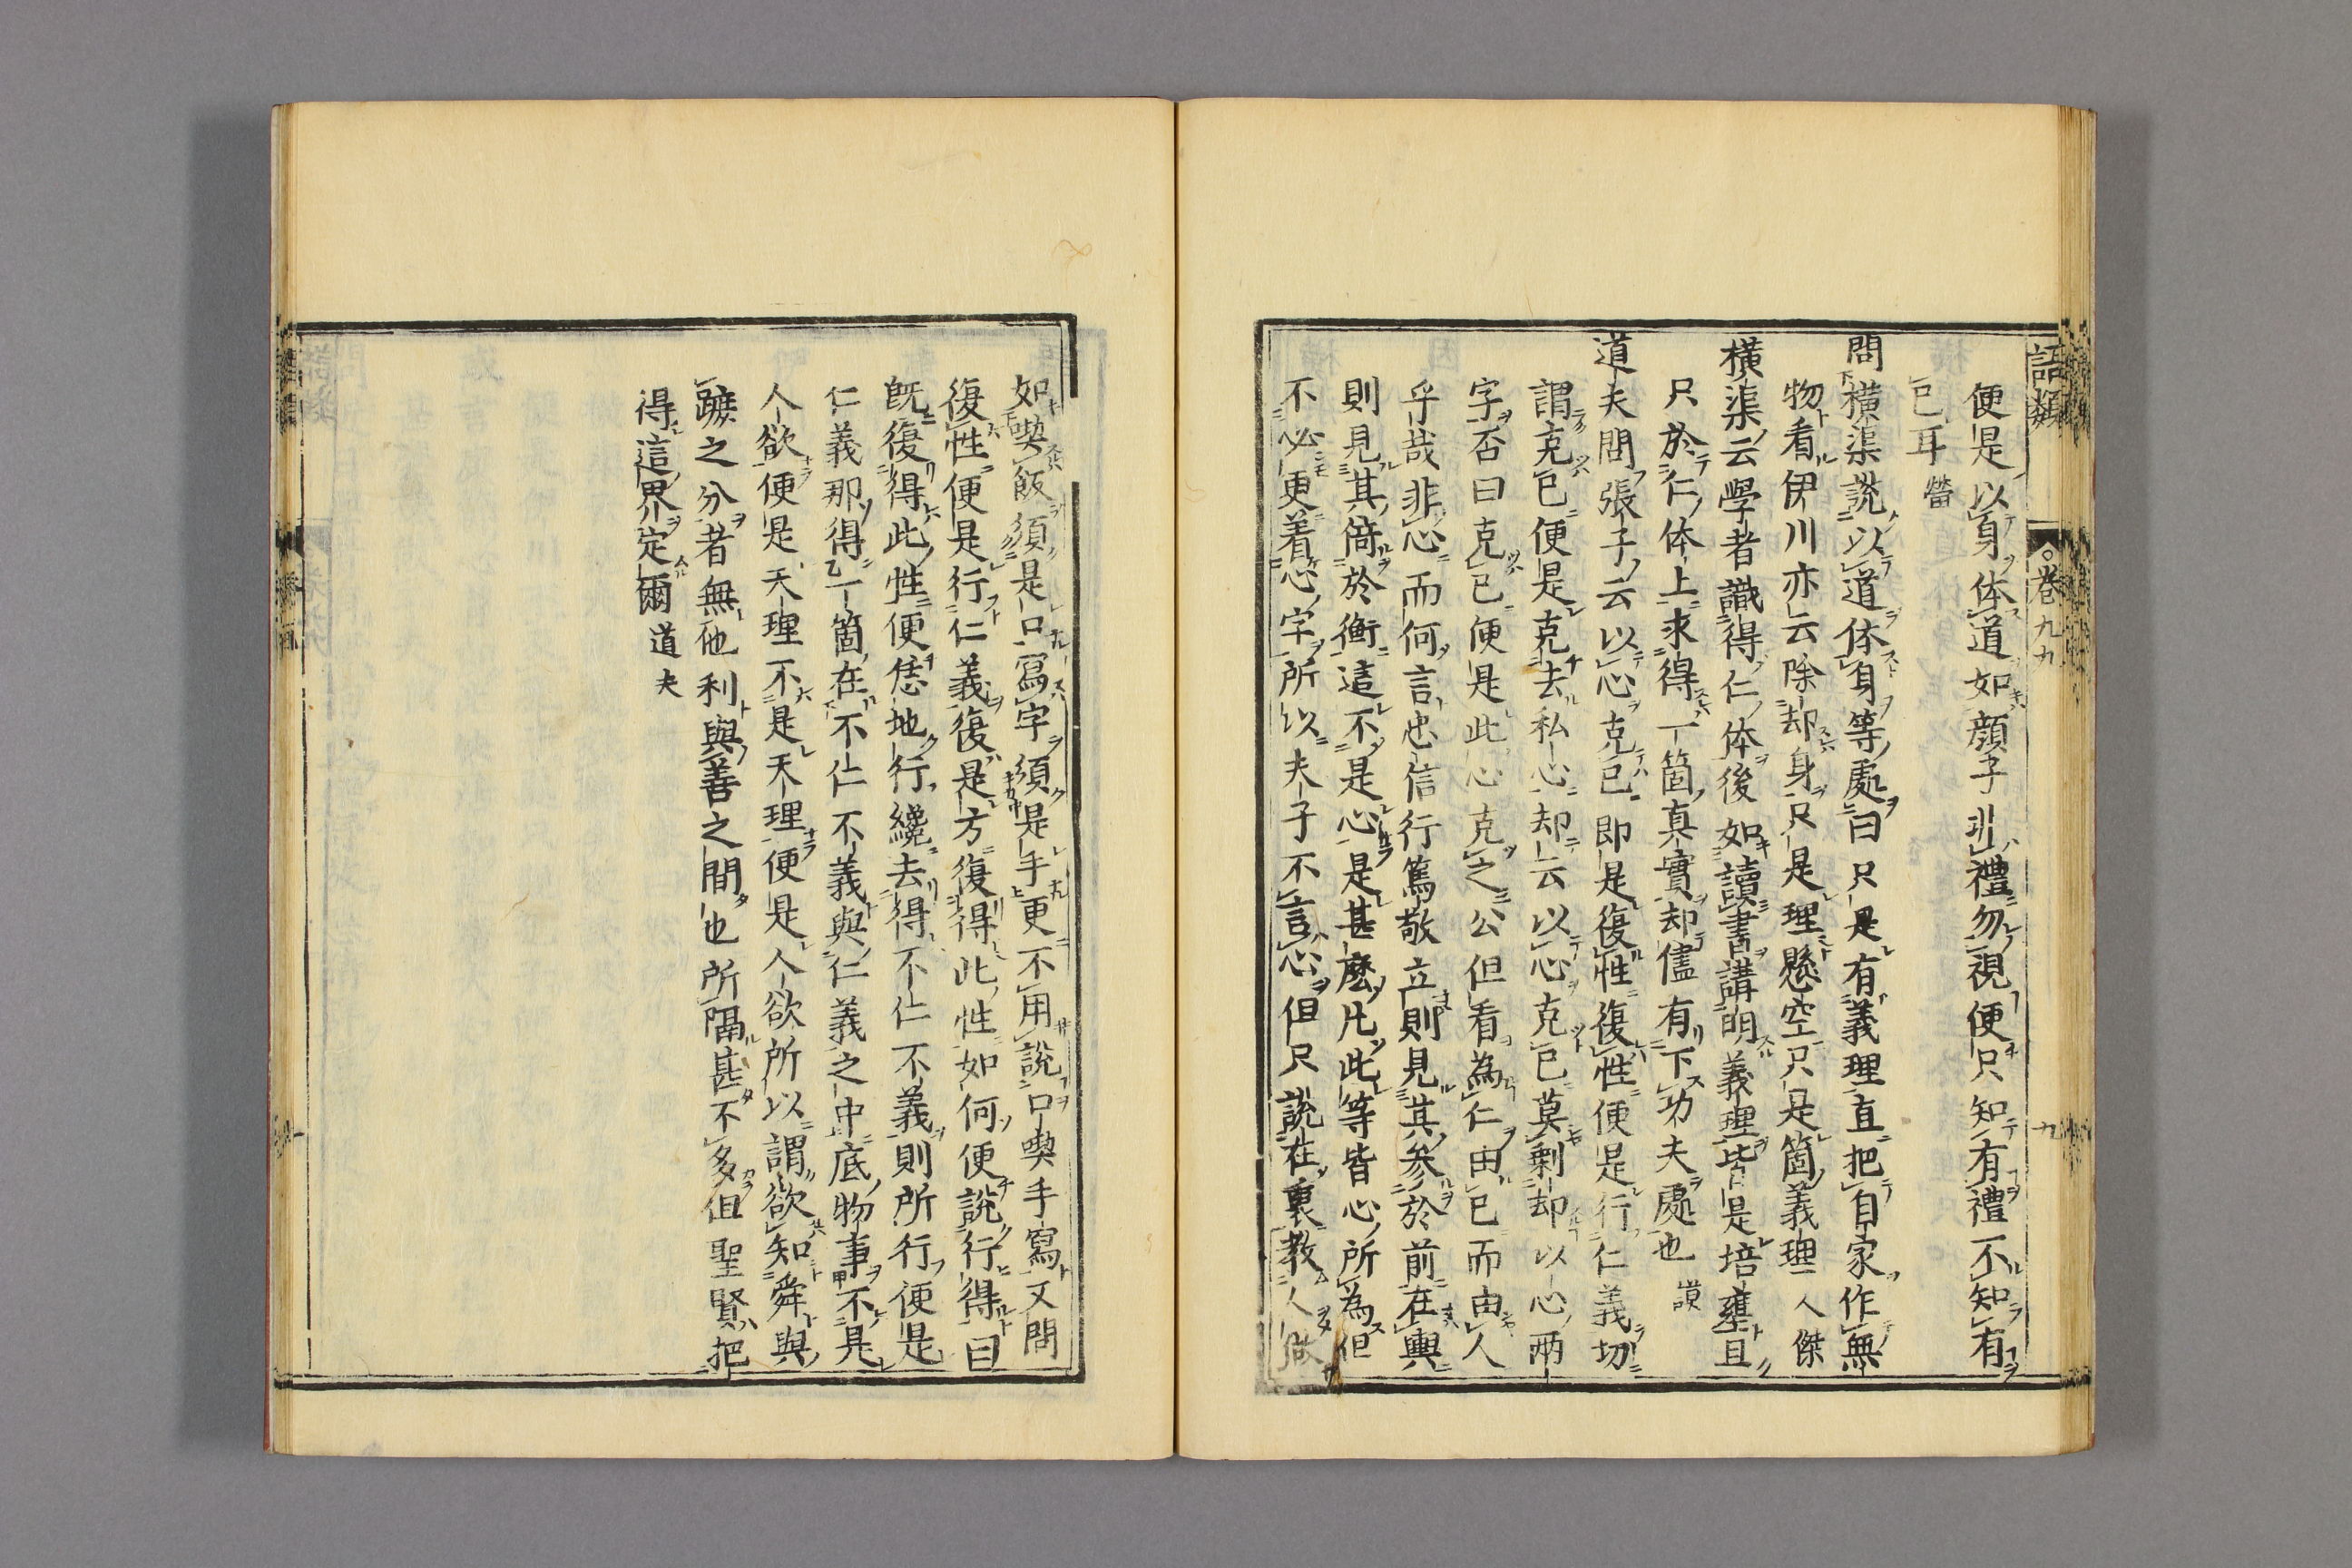 語類 卷九九 九
便是以身体道如顔子非禮勿視便只知有禮不知有
已耳 𦬊
問橫渠說以道体身等處曰只是有義理直把自家作無
物看伊川亦云除却身只是理懸空只是箇義理 人傑
橫渠云學者識得仁体後如讀書講明義理皆是培壅且
只於仁体上求得一箇真實却儘有下功夫處也 謨
道夫問張子云以心克己即是復性復性便是行仁義切
謂克己便是克去私心却云以心克己莫剩却以心兩
字否曰克己便是此心克之公但看為仁由己而由人
乎哉非心而何言忠信行篤敬立則見其參於前在輿
則見其倚於衡這不是心是甚麽凡此等皆心所為但
不必更着心字所以夫子不言心但只說在裏教人做
如喫飯須是口寫字須是手更不用說口喫手寫又問
復性便是行仁義復是方復得此性如何便說行得曰
既復得此性便恁地行纔去得不仁不義則所行便是
仁義那得一箇在不仁不義與仁義之中底物事不是
人欲便是天理不是天理便是人欲所以謂欲知舜與
蹠之分者無他利與善之間也所隔甚不多但聖賢把
得這界定爾 道夫